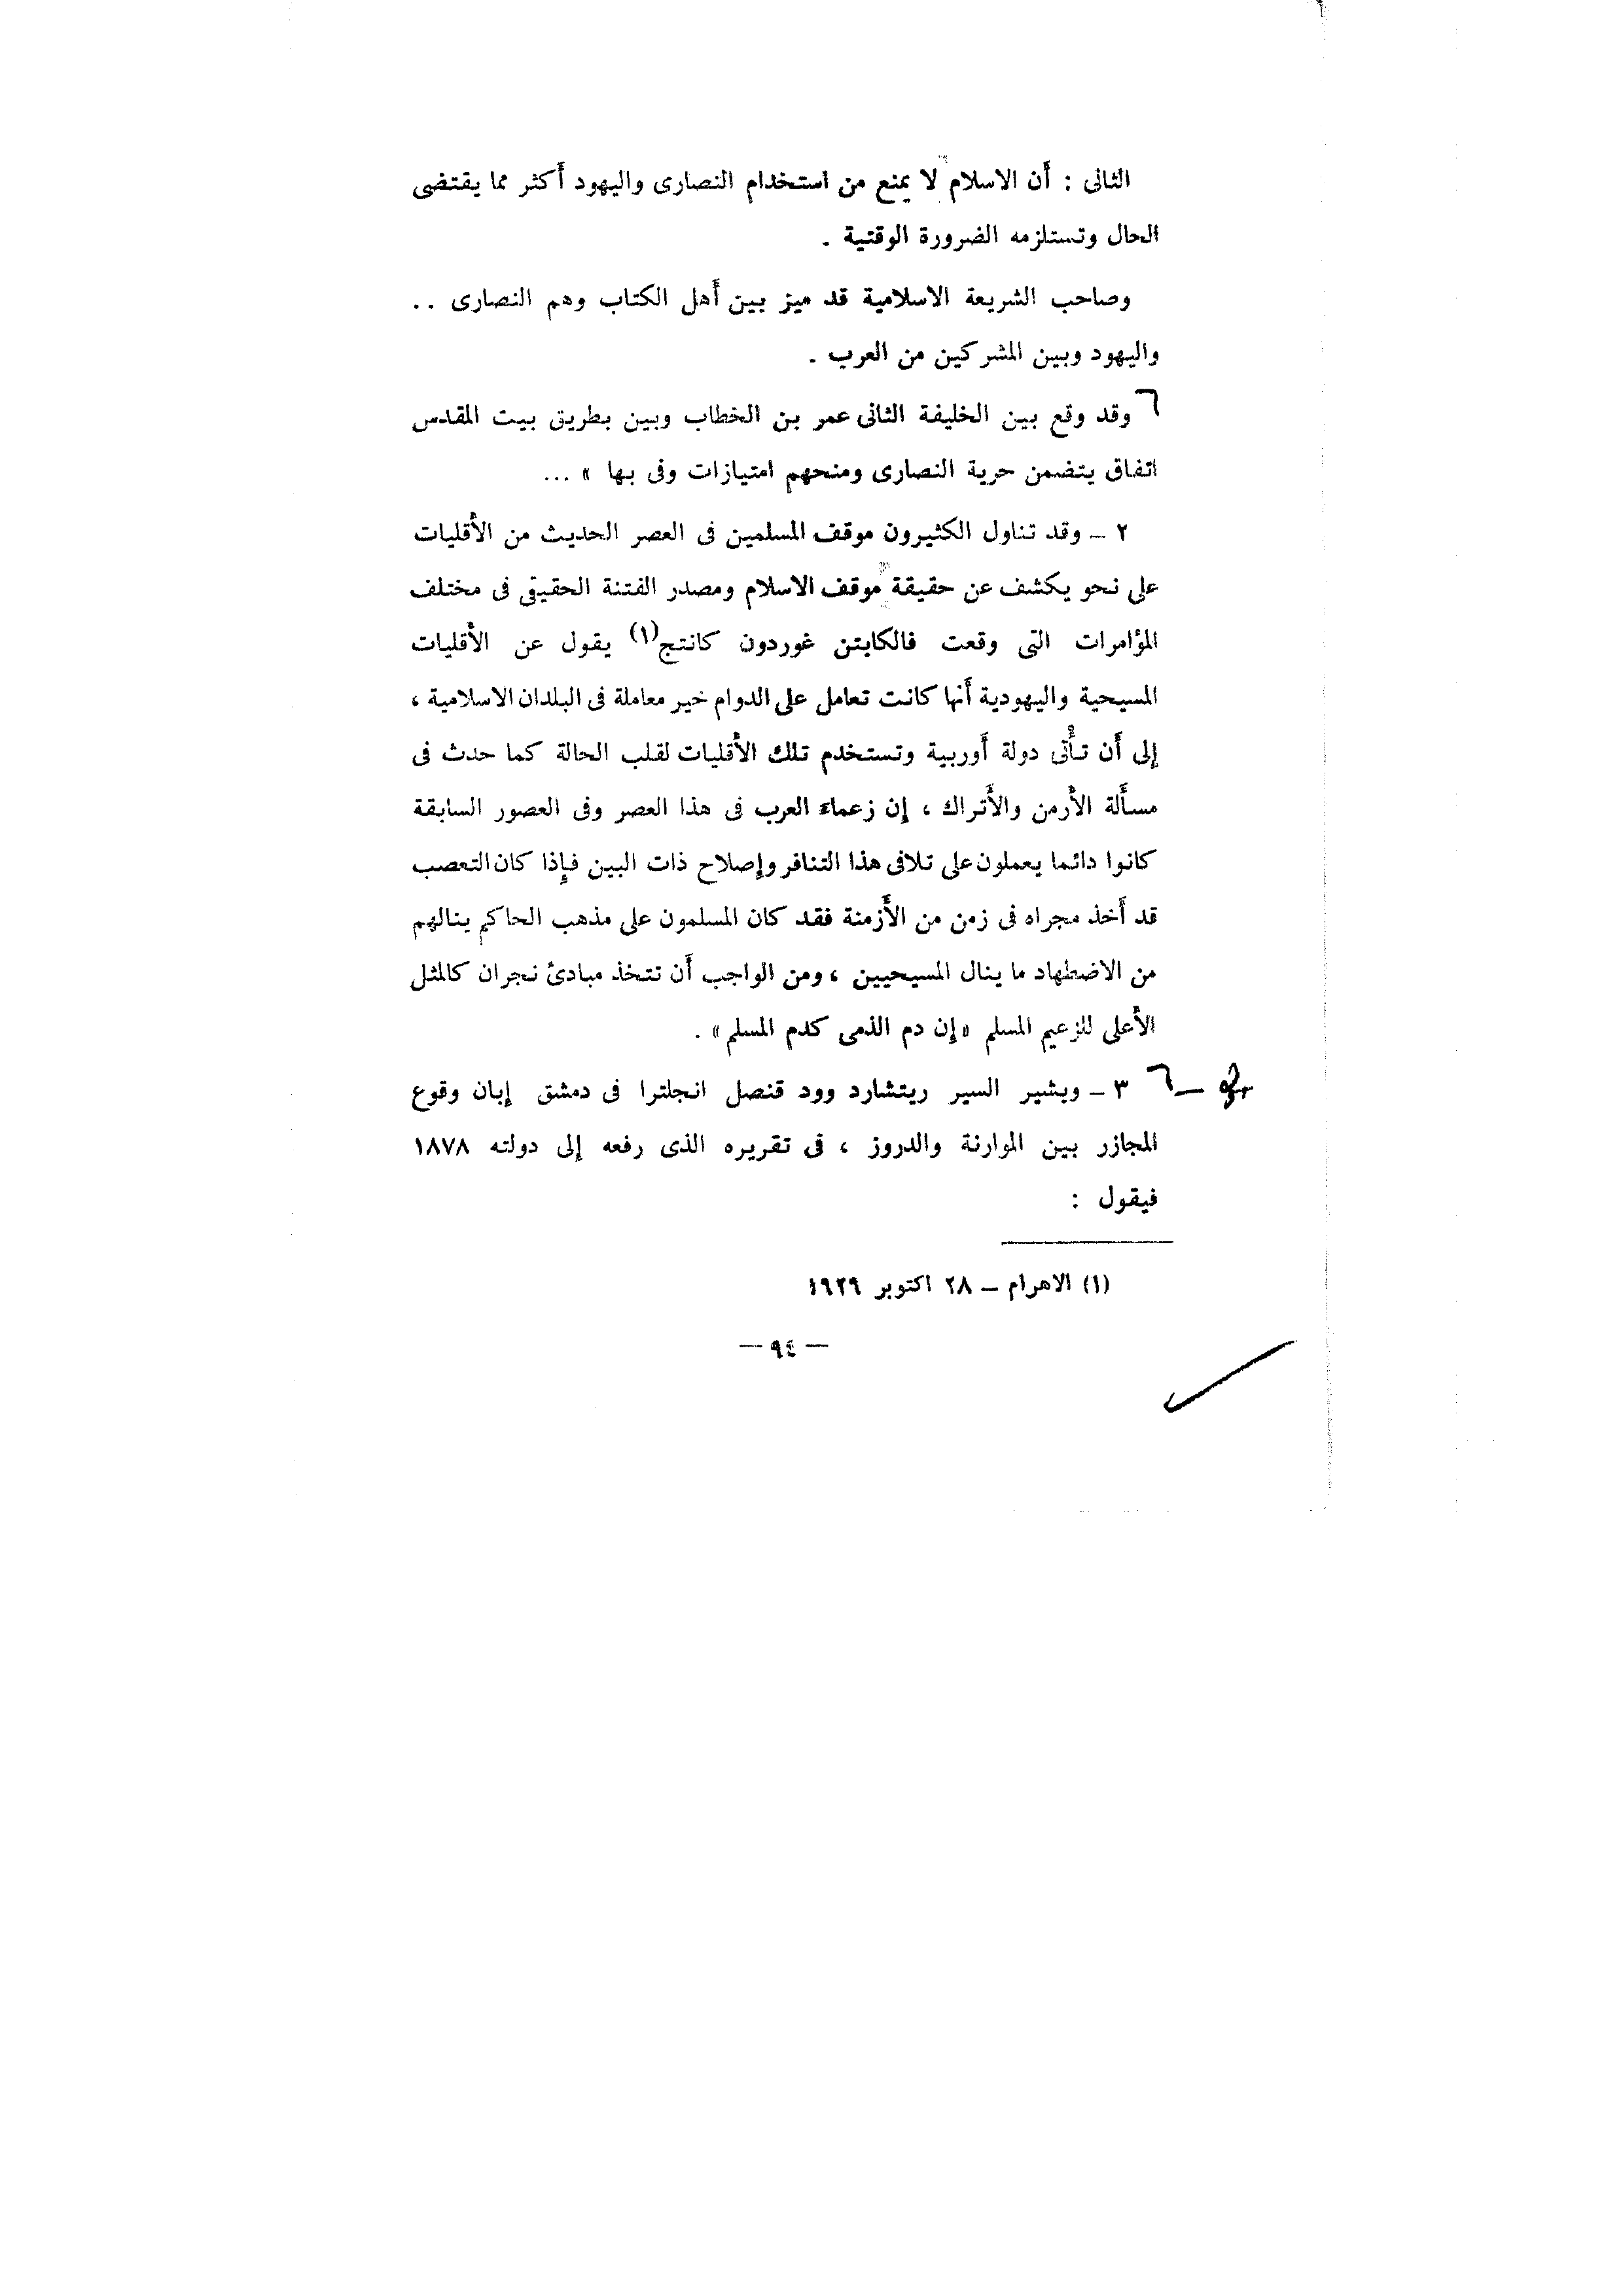 الثانى : أن الاسلام لا يمنع من استخدام النصارى واليهود أكثر مما يقتضى
الحال وتستلزمه الضرورة الوقتية .
وصاحب الشريعة الاسلامية قد ميز بين أهل الكتاب وهم النصارى ..
واليهود وبين المشركين من العرب .
وقد وقع بين الخليفة الثانى عمر بن الخطاب وبين بطريق بيت المقدس
اتفاق يتضمن حرية النصارى ومنحهم امتيازات وفى بها » ...
٢ – وقد تناول الكثيرون موقف المسلمين فى العصر الحديث من الأقليات
على نحو يكشف عن حقيقة موقف الاسلام ومصدر الفتنة الحقيقى فى مختلف
المؤامرات التى وقعت فالكابتن غوردون كانتج(١) يقول عن الأقليات
المسيحية واليهودية أنها كانت تعامل على الدوام خير معاملة فى البلدان الاسلامية ،
إلى أن تأتى دولة أوربية وتستخدم تلك الأقليات لقلب الحالة كما حدث فى
مسألة الأرمن والأتراك ، إن زعماء العرب فى هذا العصر وفى العصور السابقة
كانوا دائما يعملون على تلافى هذا التنافر وإصلاح ذات البين فإذا كان التعصب
قد أخذ مجراه فى زمن من الأزمنة فقد كان المسلمون على مذهب الحاكم ينالهم
من الاضطهاد ما ينال المسيحيين ، ومن الواجب أن تتخذ مبادئ نجران كالمثل
الأعلى للزعيم المسلم «إن دم الذمى كدم المسلم» .
٣ – ويشير السير ريتشارد وود قنصل انجلترا فى دمشق إبان وقوع
المجازر بين الموارنة والدروز ، فى تقريره الذى رفعه إلى دولته ١٨٧٨
فيقول :
(١) الاهرام – ٢٨ اكتوبر ١٩٢٩
— ٩٤ —